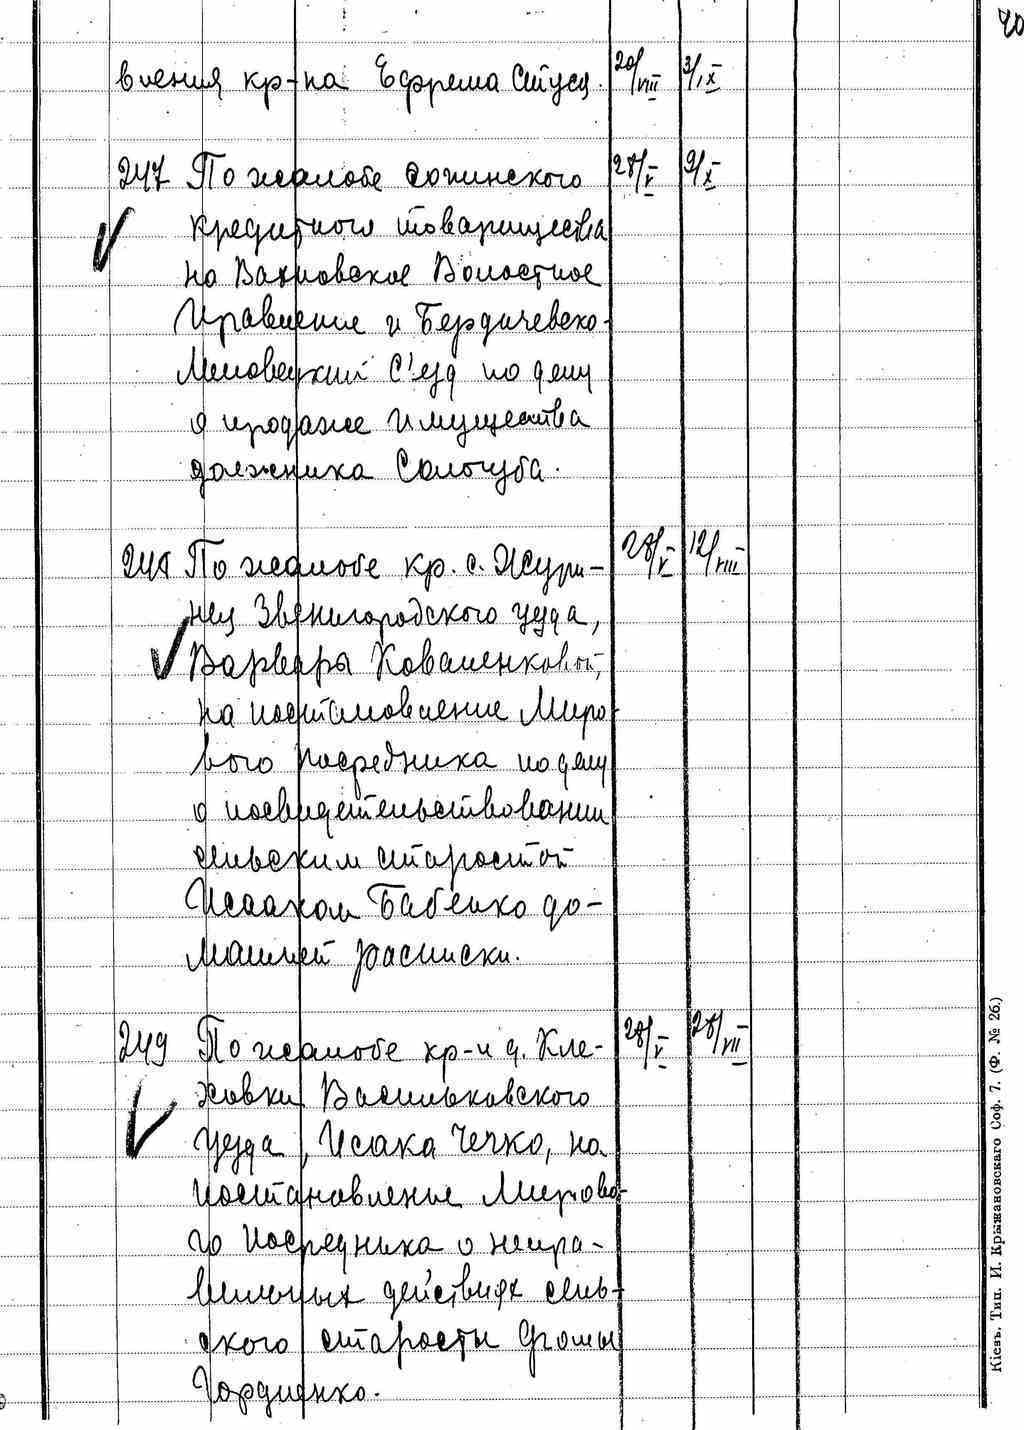 40
вления кр-на Ефрема Стуся. 20/VIII 3/IX
247 По жалобе Сопинского 28/V 9/X
кредитного товарищества
на Вахновское Волостное
Правление и Бердичевско-
Липовецкий С'езд по делу
о продаже имущества
должника Сологуба.
248 По жалобе кр. с. Журжи- 28/V 12/VIII
нец Звенигородского уезда,
Варвары Коваленковой,
на постановление Миро
вого Посредника по делу
о посвидетельствовании
сельским старостой
Исааком Бабенко до-
машней расписки.
249 По жалобе кр-н д. Кле- 28/V 28/VII
ховки Васильковского
уезда, Исака Чечко, на
постановление Мирово-
го Посредника о непра-
вильных действиях сель-
ского старосты Фомы
Гордиенко.
Кіевъ. Тип. И. Крыжановскаго Соф. 7. (Ф. № 26.)